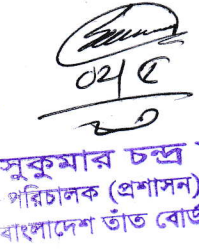 ০২/৫
২০
সুকুমার চন্দ্র
পরিচালক (প্রশাসন)
বাংলাদেশ তাঁত বোর্ড